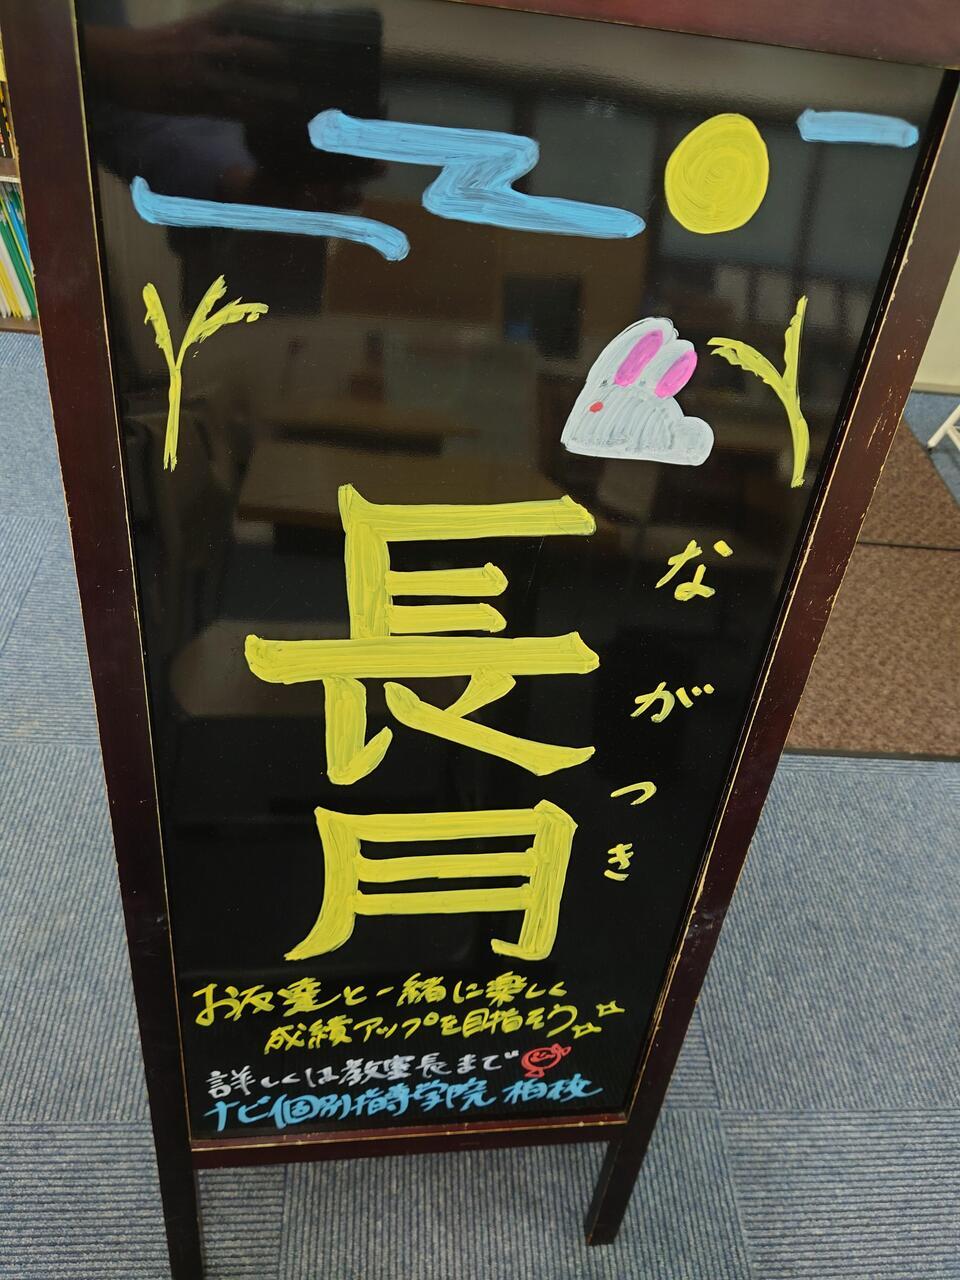 長月
ながつき
お友達と一緒に楽しく
成績アップを目指そう
詳しくは教室長まで
ナビ個別指導学院 柏校